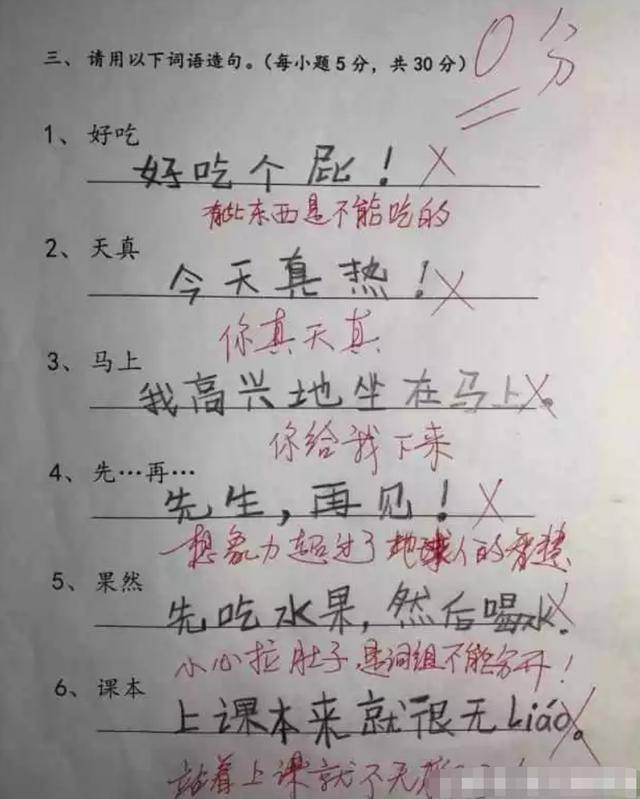 三、请用以下词语造句。(每小题5分,共30分) 0分
1、好吃
好吃个屁!
有些东西是不能吃的
2、天真
今天真热!
你真天真
3、马上
我高兴地坐在马上。
你给我下来
4、先…再…
先生,再见!
想象力超过了地球人的智慧
5、果然
先吃水果,然后喝水。
小心拉肚子,是词组不能分开!
6、课本
上课本来就很无Liáo。
站着上课就不无